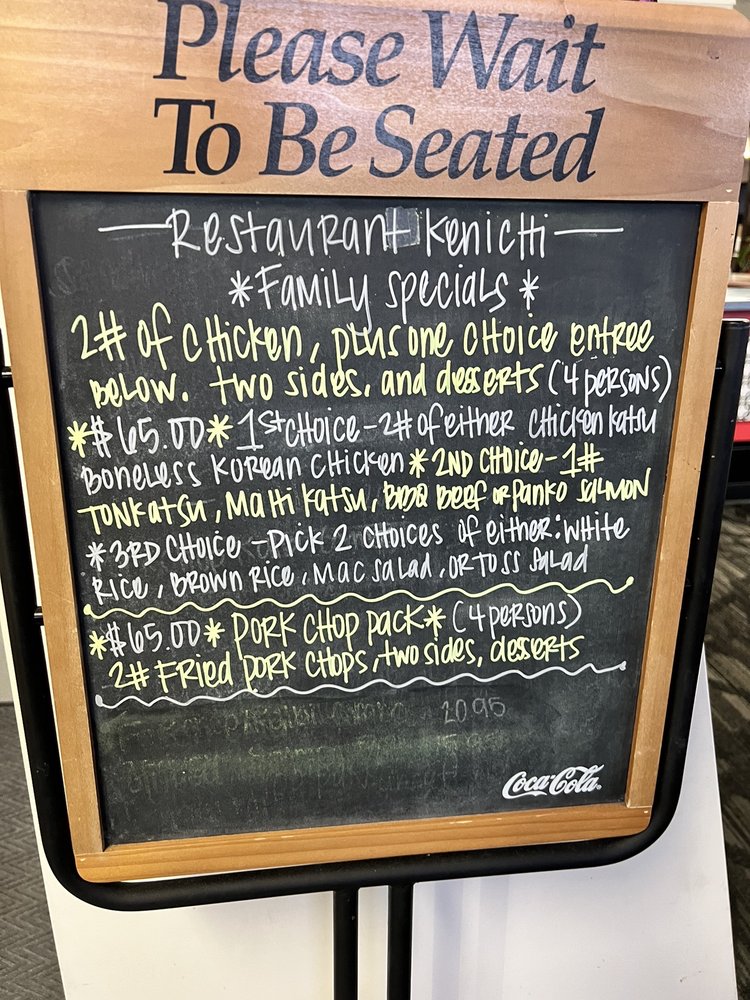 Please Wait
To Be Seated
Restaurant Kenichi
*Family specials*
2# of chicken, plus one choice entree
below. two sides, and desserts (4 persons)
*$65.00* 1st choice - 2# of either chicken katsu
Boneless Korean chicken *2ND choice - 1#
Tonkatsu, Mahi Katsu, BBQ Beef or Panko salmon
*3RD choice - Pick 2 choices of either: white
Rice, Brown rice, Mac salad, or toss salad
*$65.00* Pork chop pack* (4 persons)
2# Fried pork chops, two sides, desserts
20.95
Coca-Cola